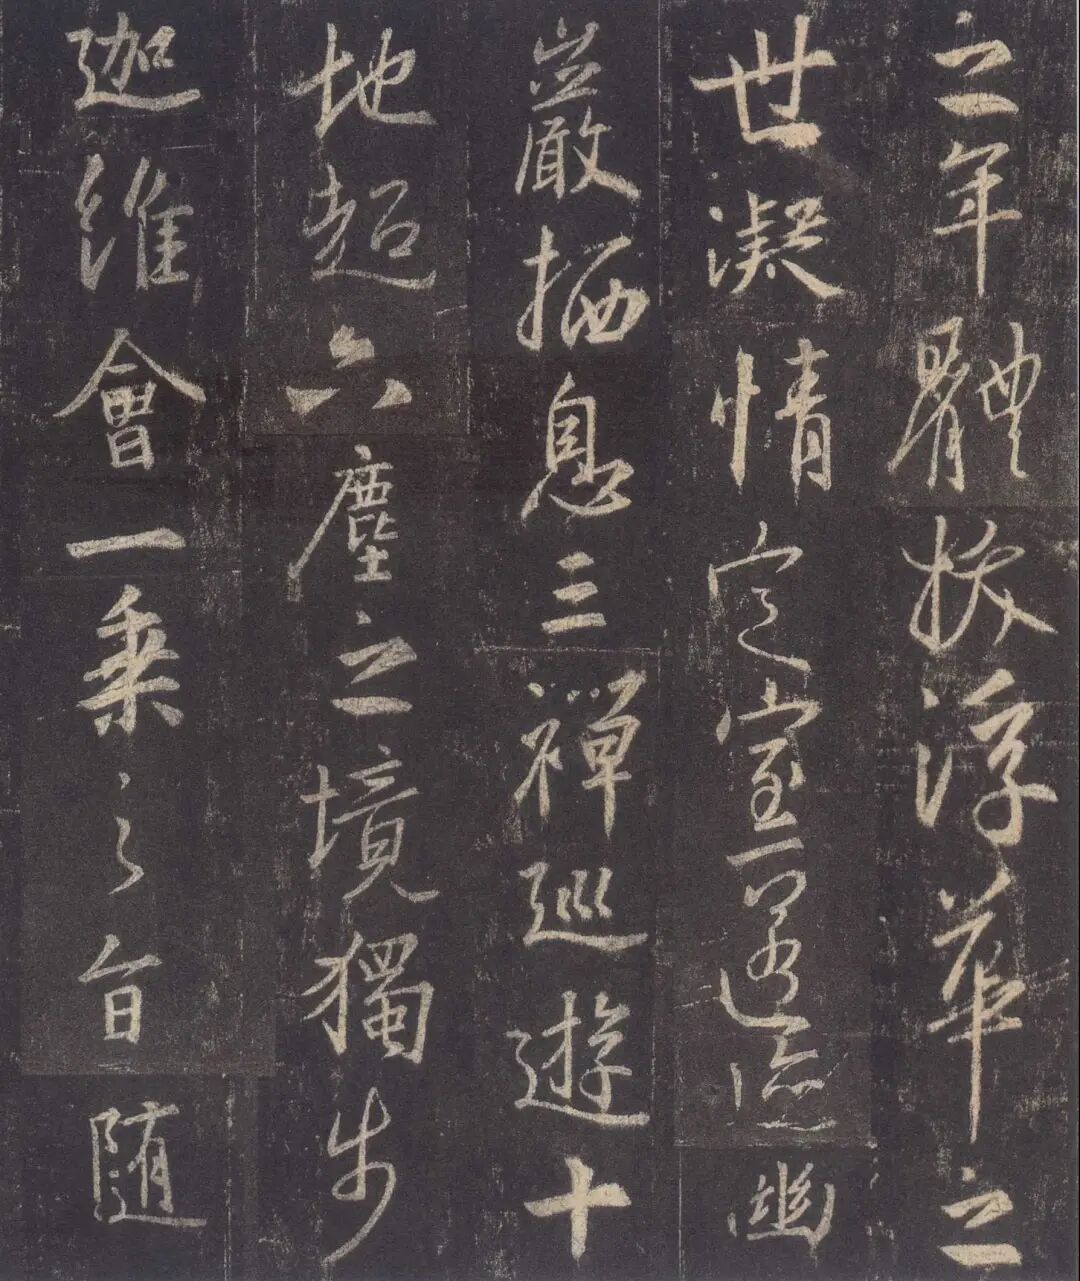 之年體拔浮華之
世凝情定室匿跡幽
巖栖息三禪巡遊十
地超六塵之境獨步
迦維會一乘之旨随